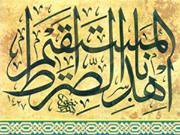 اهدنا الصراط المستقیم